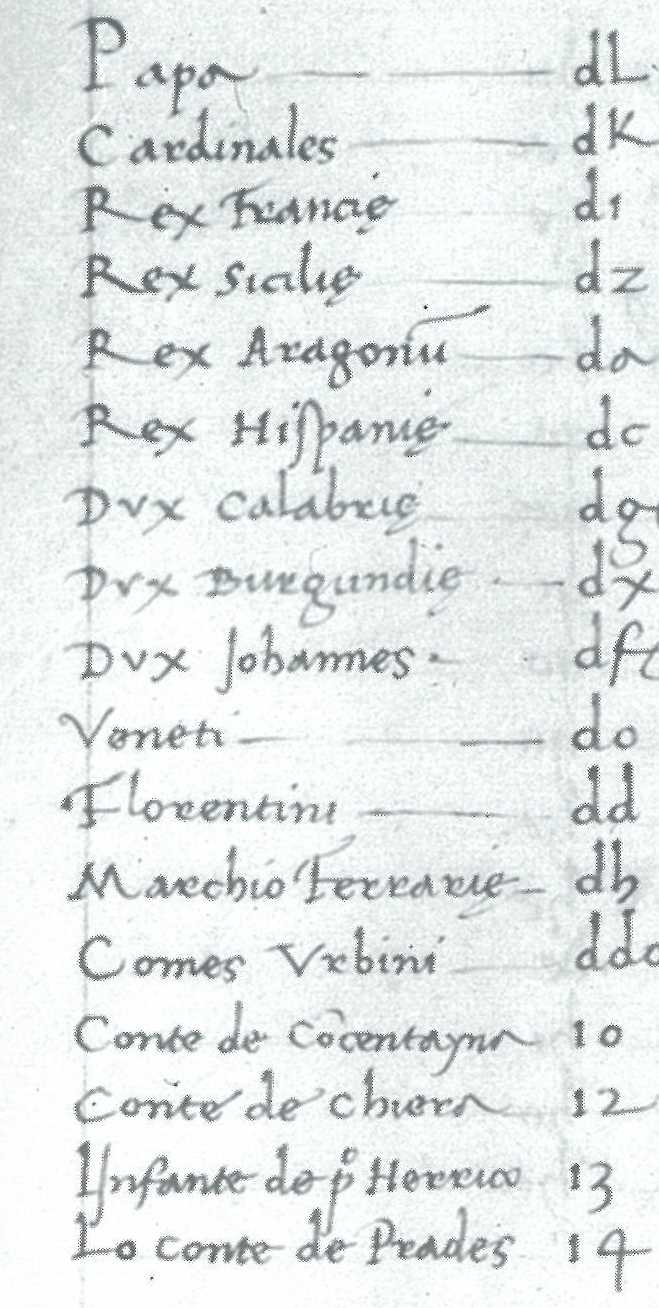 Papa dL
Cardinales dK
Rex Francię di
Rex Sicilię dz
Rex Aragonū da
Rex Hispanię dc
Dvx Calabrię dg
Dvx Burgundię dx
Dvx Johannes df
Veneti do
Florentini dd
Marchio Ferrarię db
Comes Vrbini dd
Conte de Cōcentayna 10
Conte de chiera 12
Infante do Henrico 13
Lo conte de Prades 14